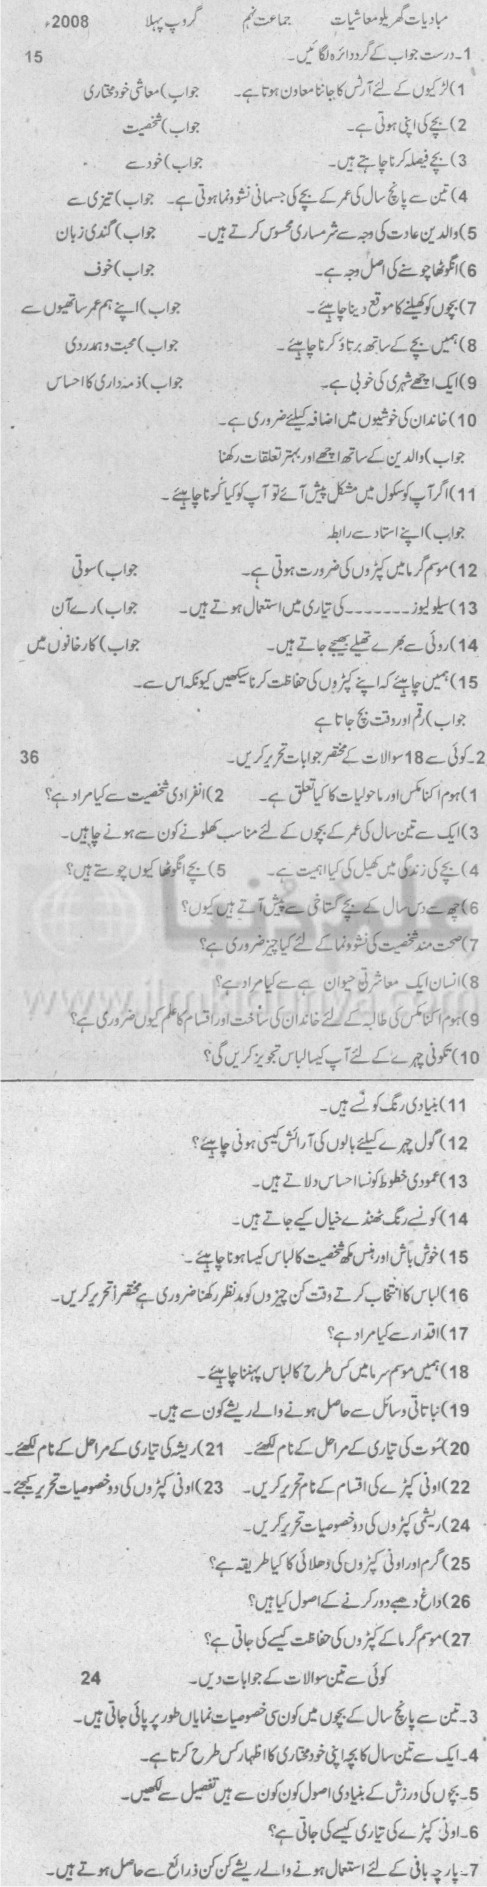 مبادیات گھریلو معاشیات جماعت نہم گروپ پہلا 2008ء
1۔ درست جواب کے گرد دائرہ لگائیں۔ 15
1) لڑکیوں کے لئے آرٹس کا جاننا معاون ہوتا ہے۔ جواب) معاشی خود مختاری
2) بچے کی اپنی ہوتی ہے۔ جواب) شخصیت
3) بچے فیصلہ کرنا چاہتے ہیں۔ جواب) خود سے
4) تین سے پانچ سال کی عمر کے بچے کی جسمانی نشوونما ہوتی ہے۔ جواب) تیزی سے
5) والدین عادت کی وجہ سے شرمساری محسوس کرتے ہیں۔ جواب) گندی زبان
6) انگوٹھا چوسنے کی اصل وجہ ہے۔ جواب) خوف
7) بچوں کو کھیلنے کا موقع دینا چاہیئے۔ جواب) اپنے ہم عمر ساتھیوں سے
8) ہمیں بچے کے ساتھ برتاؤ کرنا چاہیئے۔ جواب) محبت و ہمدردی
9) ایک اچھے شہری کی خوبی ہے۔ جواب) ذمہ داری کا احساس
10) خاندان کی خوشیوں میں اضافہ کیلئے ضروری ہے۔
جواب) والدین کے ساتھ اچھے اور بہتر تعلقات رکھنا
11) اگر آپ کو سکول میں مشکل پیش آئے تو آپ کو کیا کرنا چاہیئے۔
جواب) اپنے استاد سے رابطہ
12) موسم گرما میں کپڑوں کی ضرورت ہوتی ہے۔ جواب) سوتی
13) سیلولیوز ------- کی تیاری میں استعمال ہوتے ہیں۔ جواب) رے آن
14) روئی سے بھرے تھیلے بھیجے جاتے ہیں۔ جواب) کارخانوں میں
15) ہمیں چاہیئے کہ اپنے کپڑوں کی حفاظت کرنا سیکھیں کیونکہ اس سے۔
جواب) رقم اور وقت بچ جاتا ہے
2۔ کوئی سے 18 سوالات کے مختصر جوابات تحریر کریں۔ 36
1) ہوم اکنامکس اور ماحولیات کا کیا تعلق ہے۔ 2) انفرادی شخصیت سے کیا مراد ہے؟
3) ایک سے تین سال کی عمر کے بچوں کے لئے مناسب کھلونے کون سے ہونے چاہیں۔
4) بچے کی زندگی میں کھیل کی کیا اہمیت ہے۔ 5) بچے انگوٹھا کیوں چوستے ہیں؟
6) چھ سے دس سال کے بچے گستاخی سے پیش آتے ہیں کیوں؟
7) صحت مند شخصیت کی نشوونما کے لئے کیا چیز ضروری ہے؟
8) انسان ایک معاشرتی حیوان ہے سے کیا مراد ہے؟
9) ہوم اکنامکس کی طالبہ کے لئے خاندان کی ساخت اور اقسام کا علم کیوں ضروری ہے؟
10) تکونی چہرے کے لئے آپ کیسا لباس تجویز کریں گی؟
علم کی دُنیا
www.ilmkidunya.com
11) بنیادی رنگ کونسے ہیں۔
12) گول چہرے کیلئے بالوں کی آرائش کیسی ہونی چاہیئے؟
13) عمودی خطوط کونسا احساس دلاتے ہیں۔
14) کونسے رنگ ٹھنڈے خیال کیے جاتے ہیں۔
15) خوش باش اور ہنس مکھ شخصیت کا لباس کیسا ہونا چاہیئے۔
16) لباس کا انتخاب کرتے وقت کن چیزوں کو مدنظر رکھنا ضروری ہے مختصراً تحریر کریں۔
17) اقدار سے کیا مراد ہے؟
18) ہمیں موسم سرما میں کس طرح کا لباس پہننا چاہیئے۔
19) نباتاتی وسائل سے حاصل ہونے والے ریشے کون سے ہیں۔
20) سُوت کی تیاری کے مراحل کے نام لکھئے۔ 21) ریشہ کی تیاری کے مراحل کے نام لکھئے۔
22) اونی کپڑے کی اقسام کے نام تحریر کریں۔ 23) اونی کپڑوں کی دو خصوصیات تحریر کیجئے۔
24) ریشمی کپڑوں کی دو خصوصیات تحریر کریں۔
25) گرم اور اونی کپڑوں کی دھلائی کا کیا طریقہ ہے؟
26) داغ دھبے دور کرنے کے اصول کیا ہیں؟
27) موسم گرما کے کپڑوں کی حفاظت کیسے کی جاتی ہے؟
کوئی سے تین سوالات کے جوابات دیں۔ 24
3۔ تین سے پانچ سال کے بچوں میں کون سی خصوصیات نمایاں طور پر پائی جاتی ہیں۔
4۔ ایک سے تین سال کا بچہ اپنی خود مختاری کا اظہار کس طرح کرتا ہے۔
5۔ بچوں کی ورزش کے بنیادی اصول کون کون سے ہیں تفصیل سے لکھیں۔
6۔ اونی کپڑے کی تیاری کیسے کی جاتی ہے؟
7۔ پارچہ بافی کے لئے استعمال ہونے والے ریشے کن کن ذرائع سے حاصل ہوتے ہیں۔